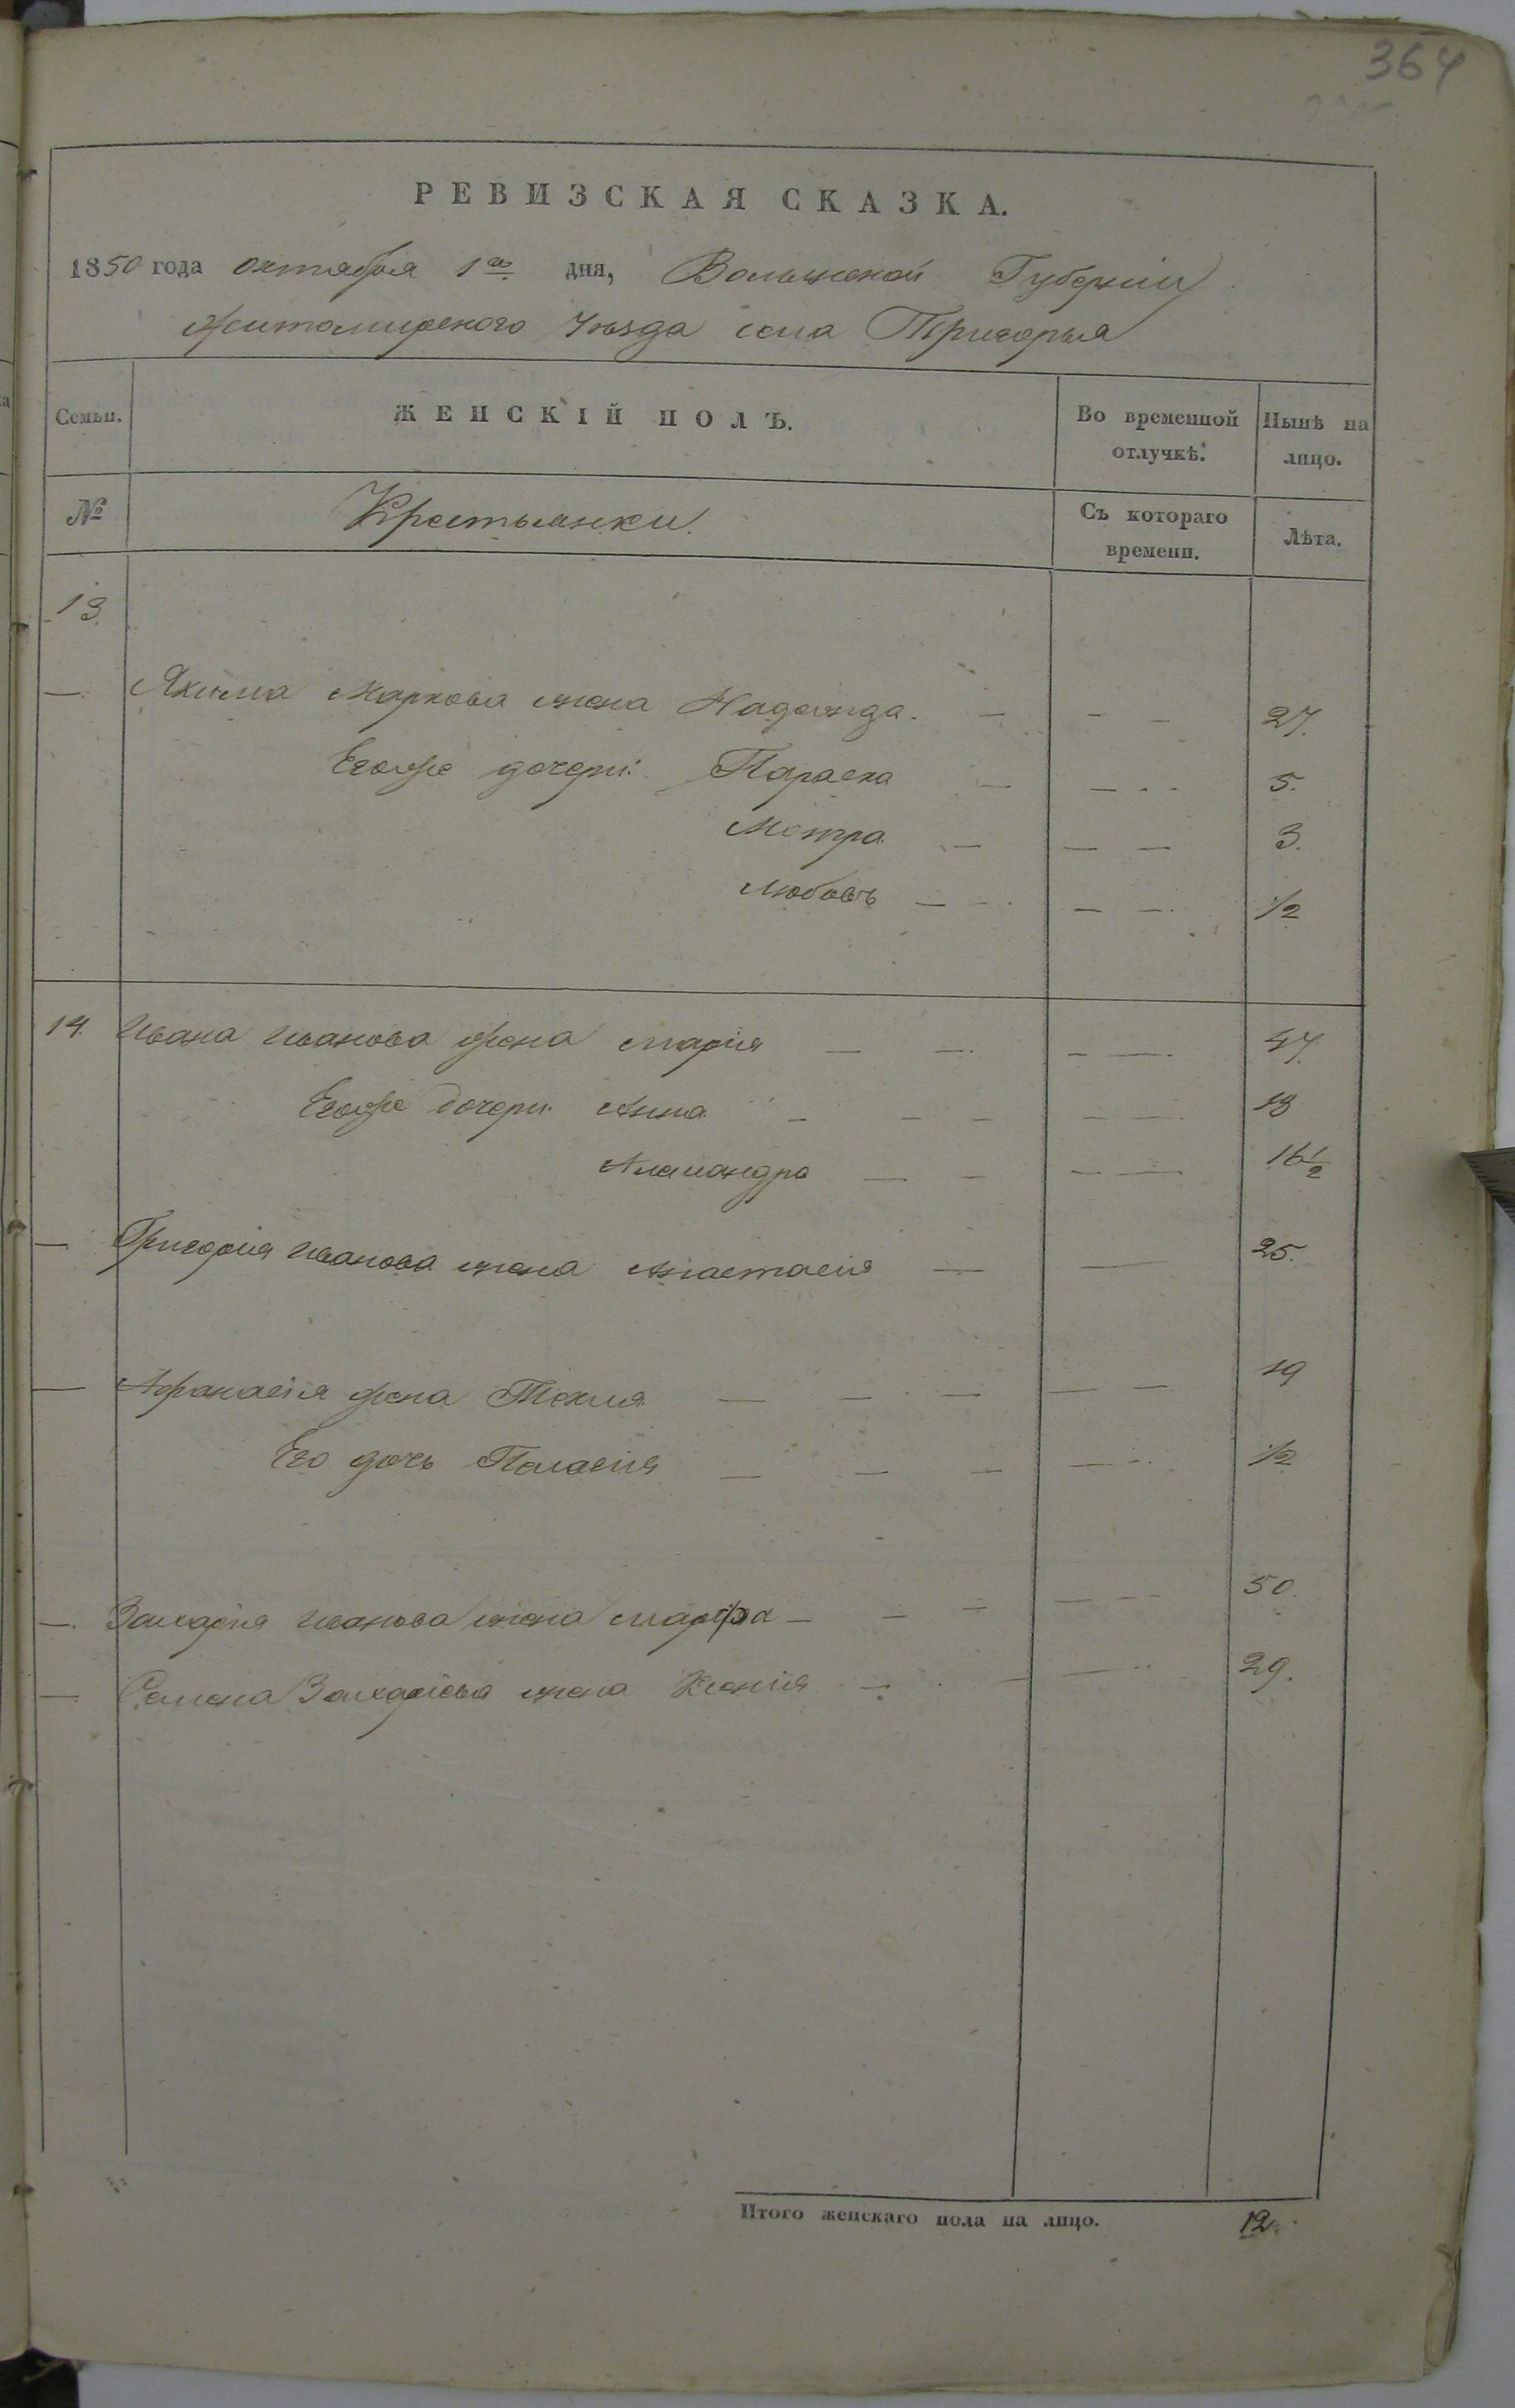 364
РЕВИЗСКАЯ СКАЗКА.
1850 года октября 1го дня, Волынской Губерніи
Житомирского Уѣзда села Тригорья
Семьи. ЖЕНСКІЙ ПОЛЪ. Во временной отлучкѣ. Нынѣ на лицо.
№ Крестьянки. Съ котораго времени. Лѣта.
13.
— Якима Маркова жена Надежда. — — — 27.
Егоже дочери: Параска — — - - 5.
Мотра — — — 3.
Любовь — - — — 1/2
14. Ивана Иванова жена Марія — — - — 47.
Егоже дочери. Анна — — — — — 18
Александра — — — — 16 1/2
— Григорія Иванова жена Анастасія — — 25.
— Афанасія жена Текля — — — — — 19
Его дочь Пелагія — — — — - 1/2
— Захарія Иванова жена Марфа — — — — — 50.
— Семена Захаріева жена Ксенія — - — — 29.
Итого женскаго пола на лицо. 12.